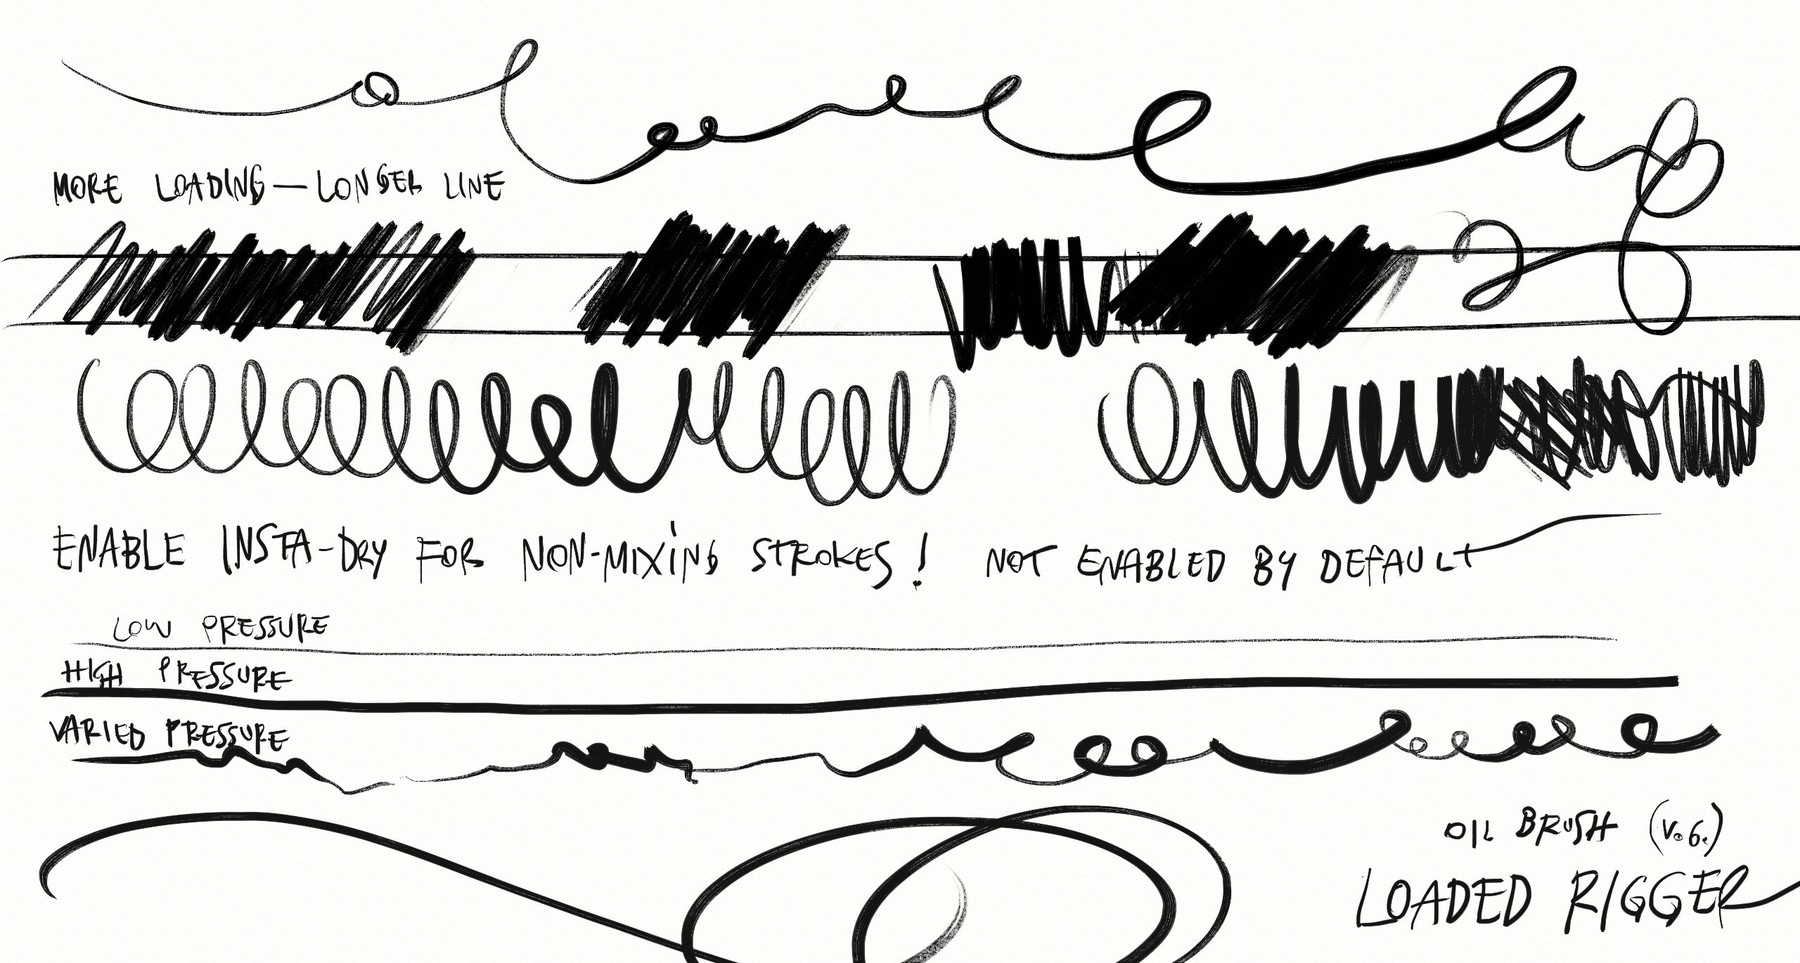 MORE LOADING — LONGER LINE
ENABLE INSTA-DRY FOR NON-MIXING STROKES! NOT ENABLED BY DEFAULT
LOW PRESSURE
HIGH PRESSURE
VARIED PRESSURE
OIL BRUSH (V.6.)
LOADED RIGGER